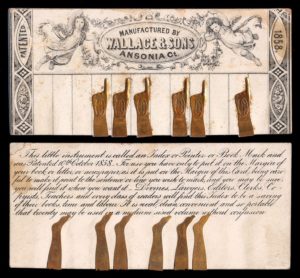 PATENTED
MANUFACTURED BY
WALLACE & SONS
ANSONIA Ct.
1858
This little instrument is called an Index or Pointer or Book Mark and
was Patented 10th October 1858. To use you have only to put it on the Margin of
your book or letter, or newspaper, as it is put on the Margin of this Card, being care-
ful to make it point to the sentence or line you wish to mark, and you may be sure
you will find it when you want it. Divines, Lawyers, Editors, Clerks, Co-
pyists, Teachers and every class of readers will find this Index to be a saving
of their books, time and labour. It is neat, cheap, convenient and so portable
that twenty may be used in a volume used without confusion